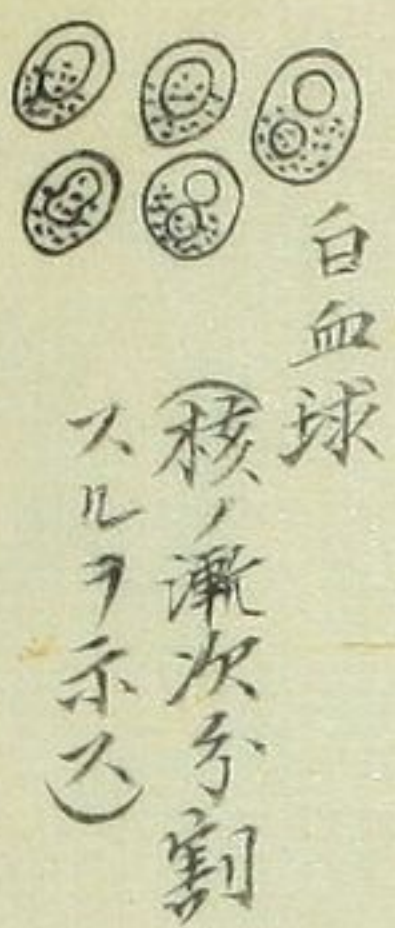 白血球
(核ノ漸次分割
スルヲ示ス)